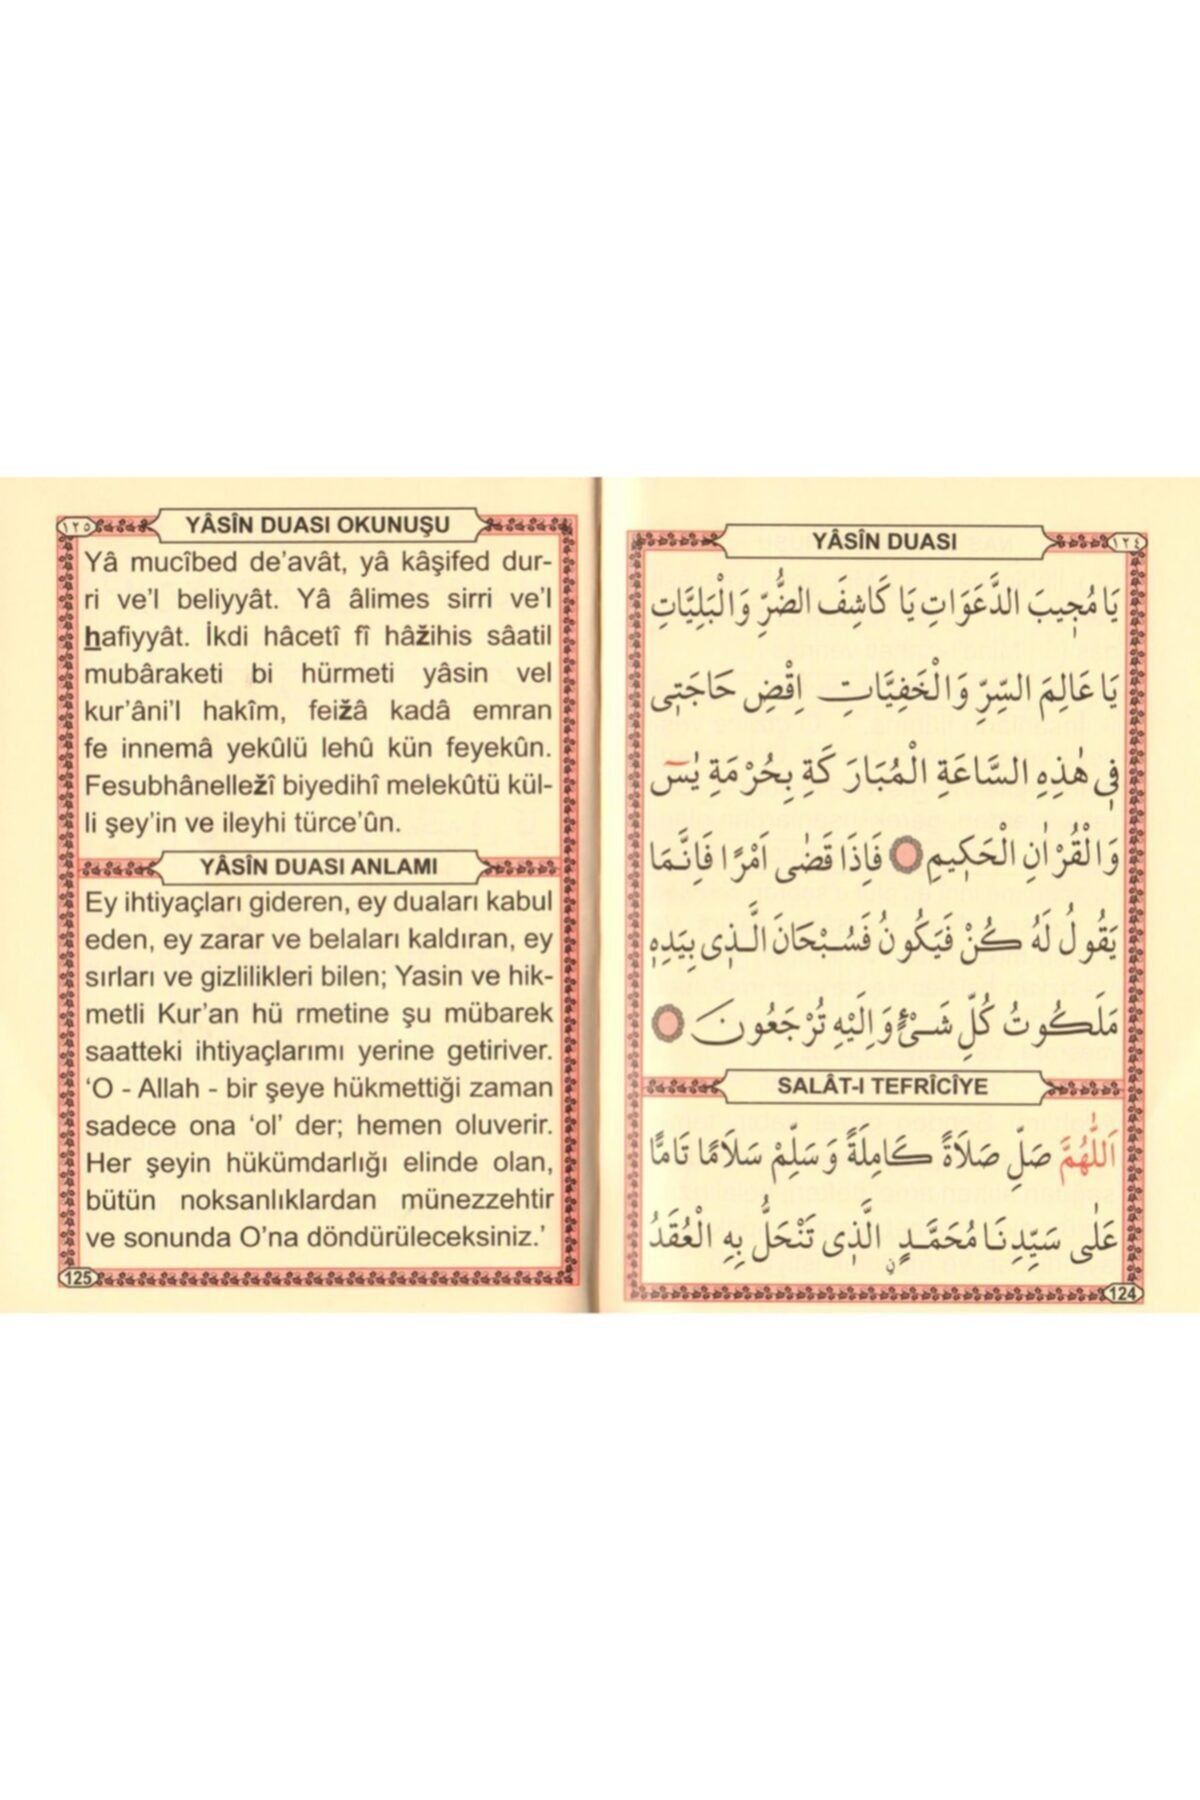 ١٢٤
YÂSÎN DUASI
يَا مُجِيبَ الدَّعَوَاتِ يَا كَاشِفَ الضُّرِّ وَالْبَلِيَّاتِ
يَا عَالِمَ السِّرِّ وَالْخَفِيَّاتِ اِقْضِ حَاجَتِى
فِى هٰذِهِ السَّاعَةِ الْمُبَارَكَةِ بِحُرْمَةِ يٰسٓ
وَالْقُرْاٰنِ الْحَكِيمِ فَاِذَا قَضٰى اَمْرًا فَاِنَّمَا
يَقُولُ لَهُ كُنْ فَيَكُونُ فَسُبْحَانَ الَّذِى بِيَدِهِ
مَلَكُوتُ كُلِّ شَىْءٍ وَاِلَيْهِ تُرْجَعُونَ
SALÂT-I TEFRÎCİYE
اَللّٰهُمَّ صَلِّ صَلَاةً كَامِلَةً وَسَلِّمْ سَلَامًا تَامًّا
عَلٰى سَيِّدِنَا مُحَمَّدٍ الَّذِى تَنْحَلُّ بِهِ الْعُقَدُ
124
١٢٥
YÂSÎN DUASI OKUNUŞU
Yâ mucîbed de’avât, yâ kâşifed dur-
ri ve’l beliyyât. Yâ âlimes sirri ve’l
hafiyyât. İkdi hâcetî fî hâžihis sâatil
mubâraketi bi hürmeti yâsin vel
kur’âni’l hakîm, feižâ kadâ emran
fe innemâ yekûlü lehû kün feyekûn.
Fesubhânelležî biyedihî melekûtü kül-
li şey’in ve ileyhi türce’ûn.
YÂSÎN DUASI ANLAMI
Ey ihtiyaçları gideren, ey duaları kabul
eden, ey zarar ve belaları kaldıran, ey
sırları ve gizlilikleri bilen; Yasin ve hik-
metli Kur’an hü rmetine şu mübarek
saatteki ihtiyaçlarımı yerine getiriver.
‘O - Allah - bir şeye hükmettiği zaman
sadece ona ‘ol’ der; hemen oluverir.
Her şeyin hükümdarlığı elinde olan,
bütün noksanlıklardan münezzehtir
ve sonunda O’na döndürüleceksiniz.’
125